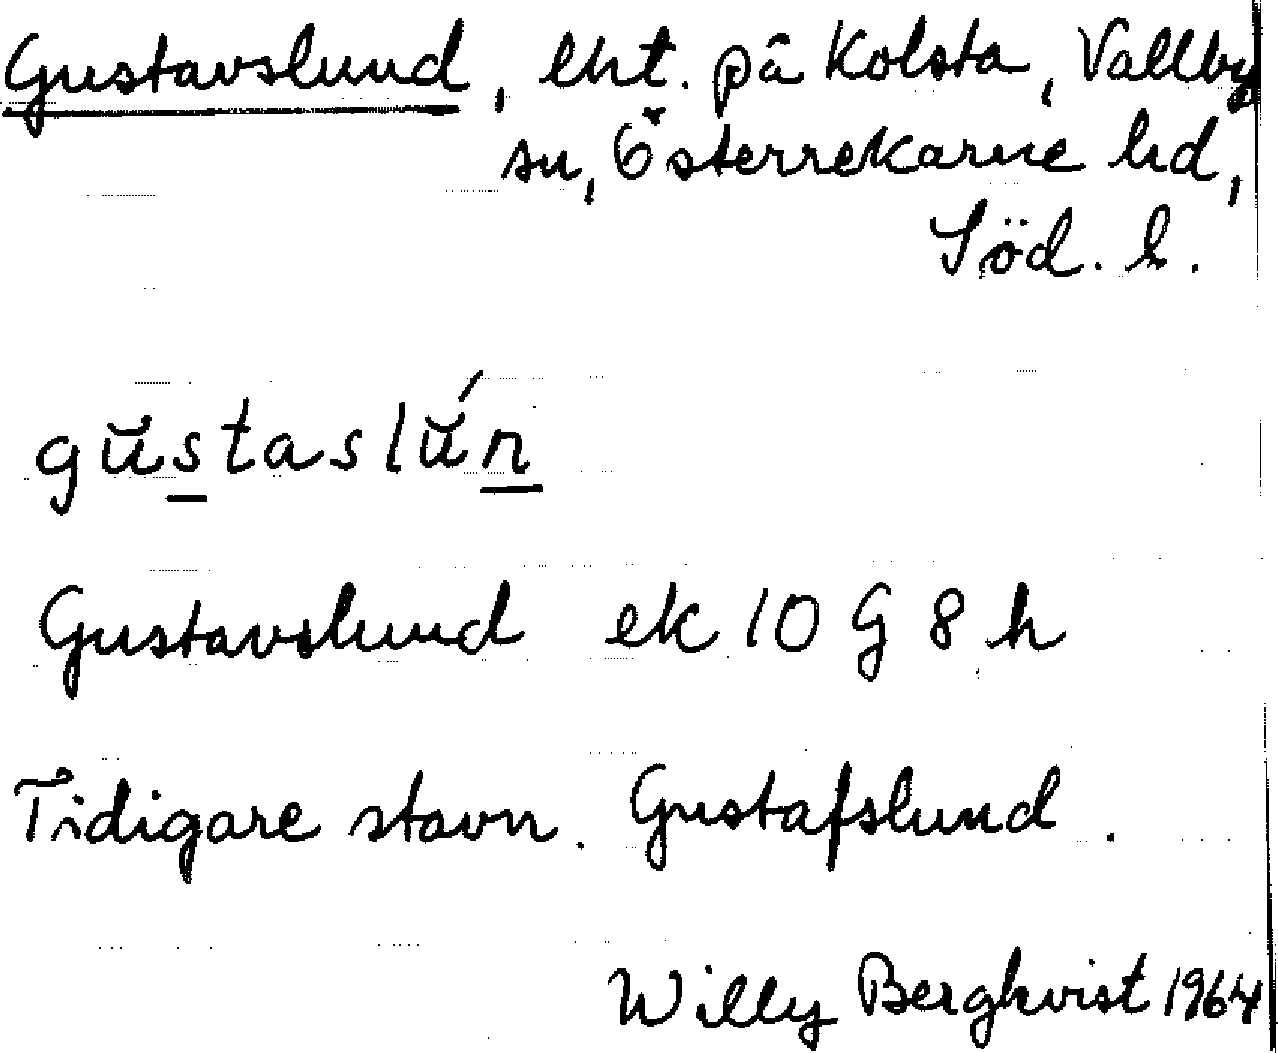 Gustavslund, lht. på Kolsta, Vallby
sn, Österrekarne hd,
Söd. l.
gŭstaslŭ́n
Gustavslund ek 10 G 8 h
Tidigare stavn. Gustafslund.
Willy Bergkvist 1964